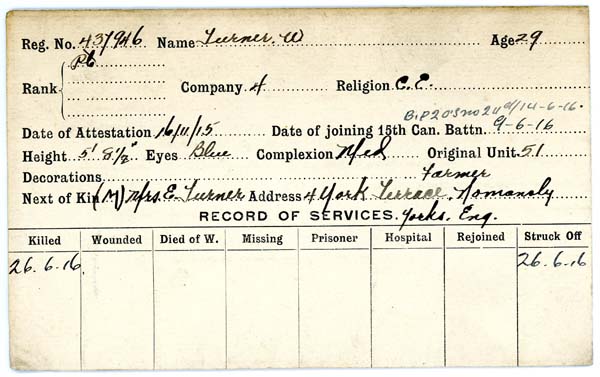 Reg. No. 437946 Name Turner. W Age 29
Pte
Rank Company 4 Religion C.E.
14-6-16.
Date of Attestation 16/11/15 Date of joining 15th Can. Battn. 9-6-16
Height 5' 8½" Eyes Blue Complexion Med Original Unit. 51
Decorations Farmer
Next of Kin (M) Mrs. E. Turner Address 4 York Terrace. Normanby
RECORD OF SERVICES. Yorks. Eng.
Killed Wounded Died of W. Missing Prisoner Hospital Rejoined Struck Off
26.6.16. 26.6.16